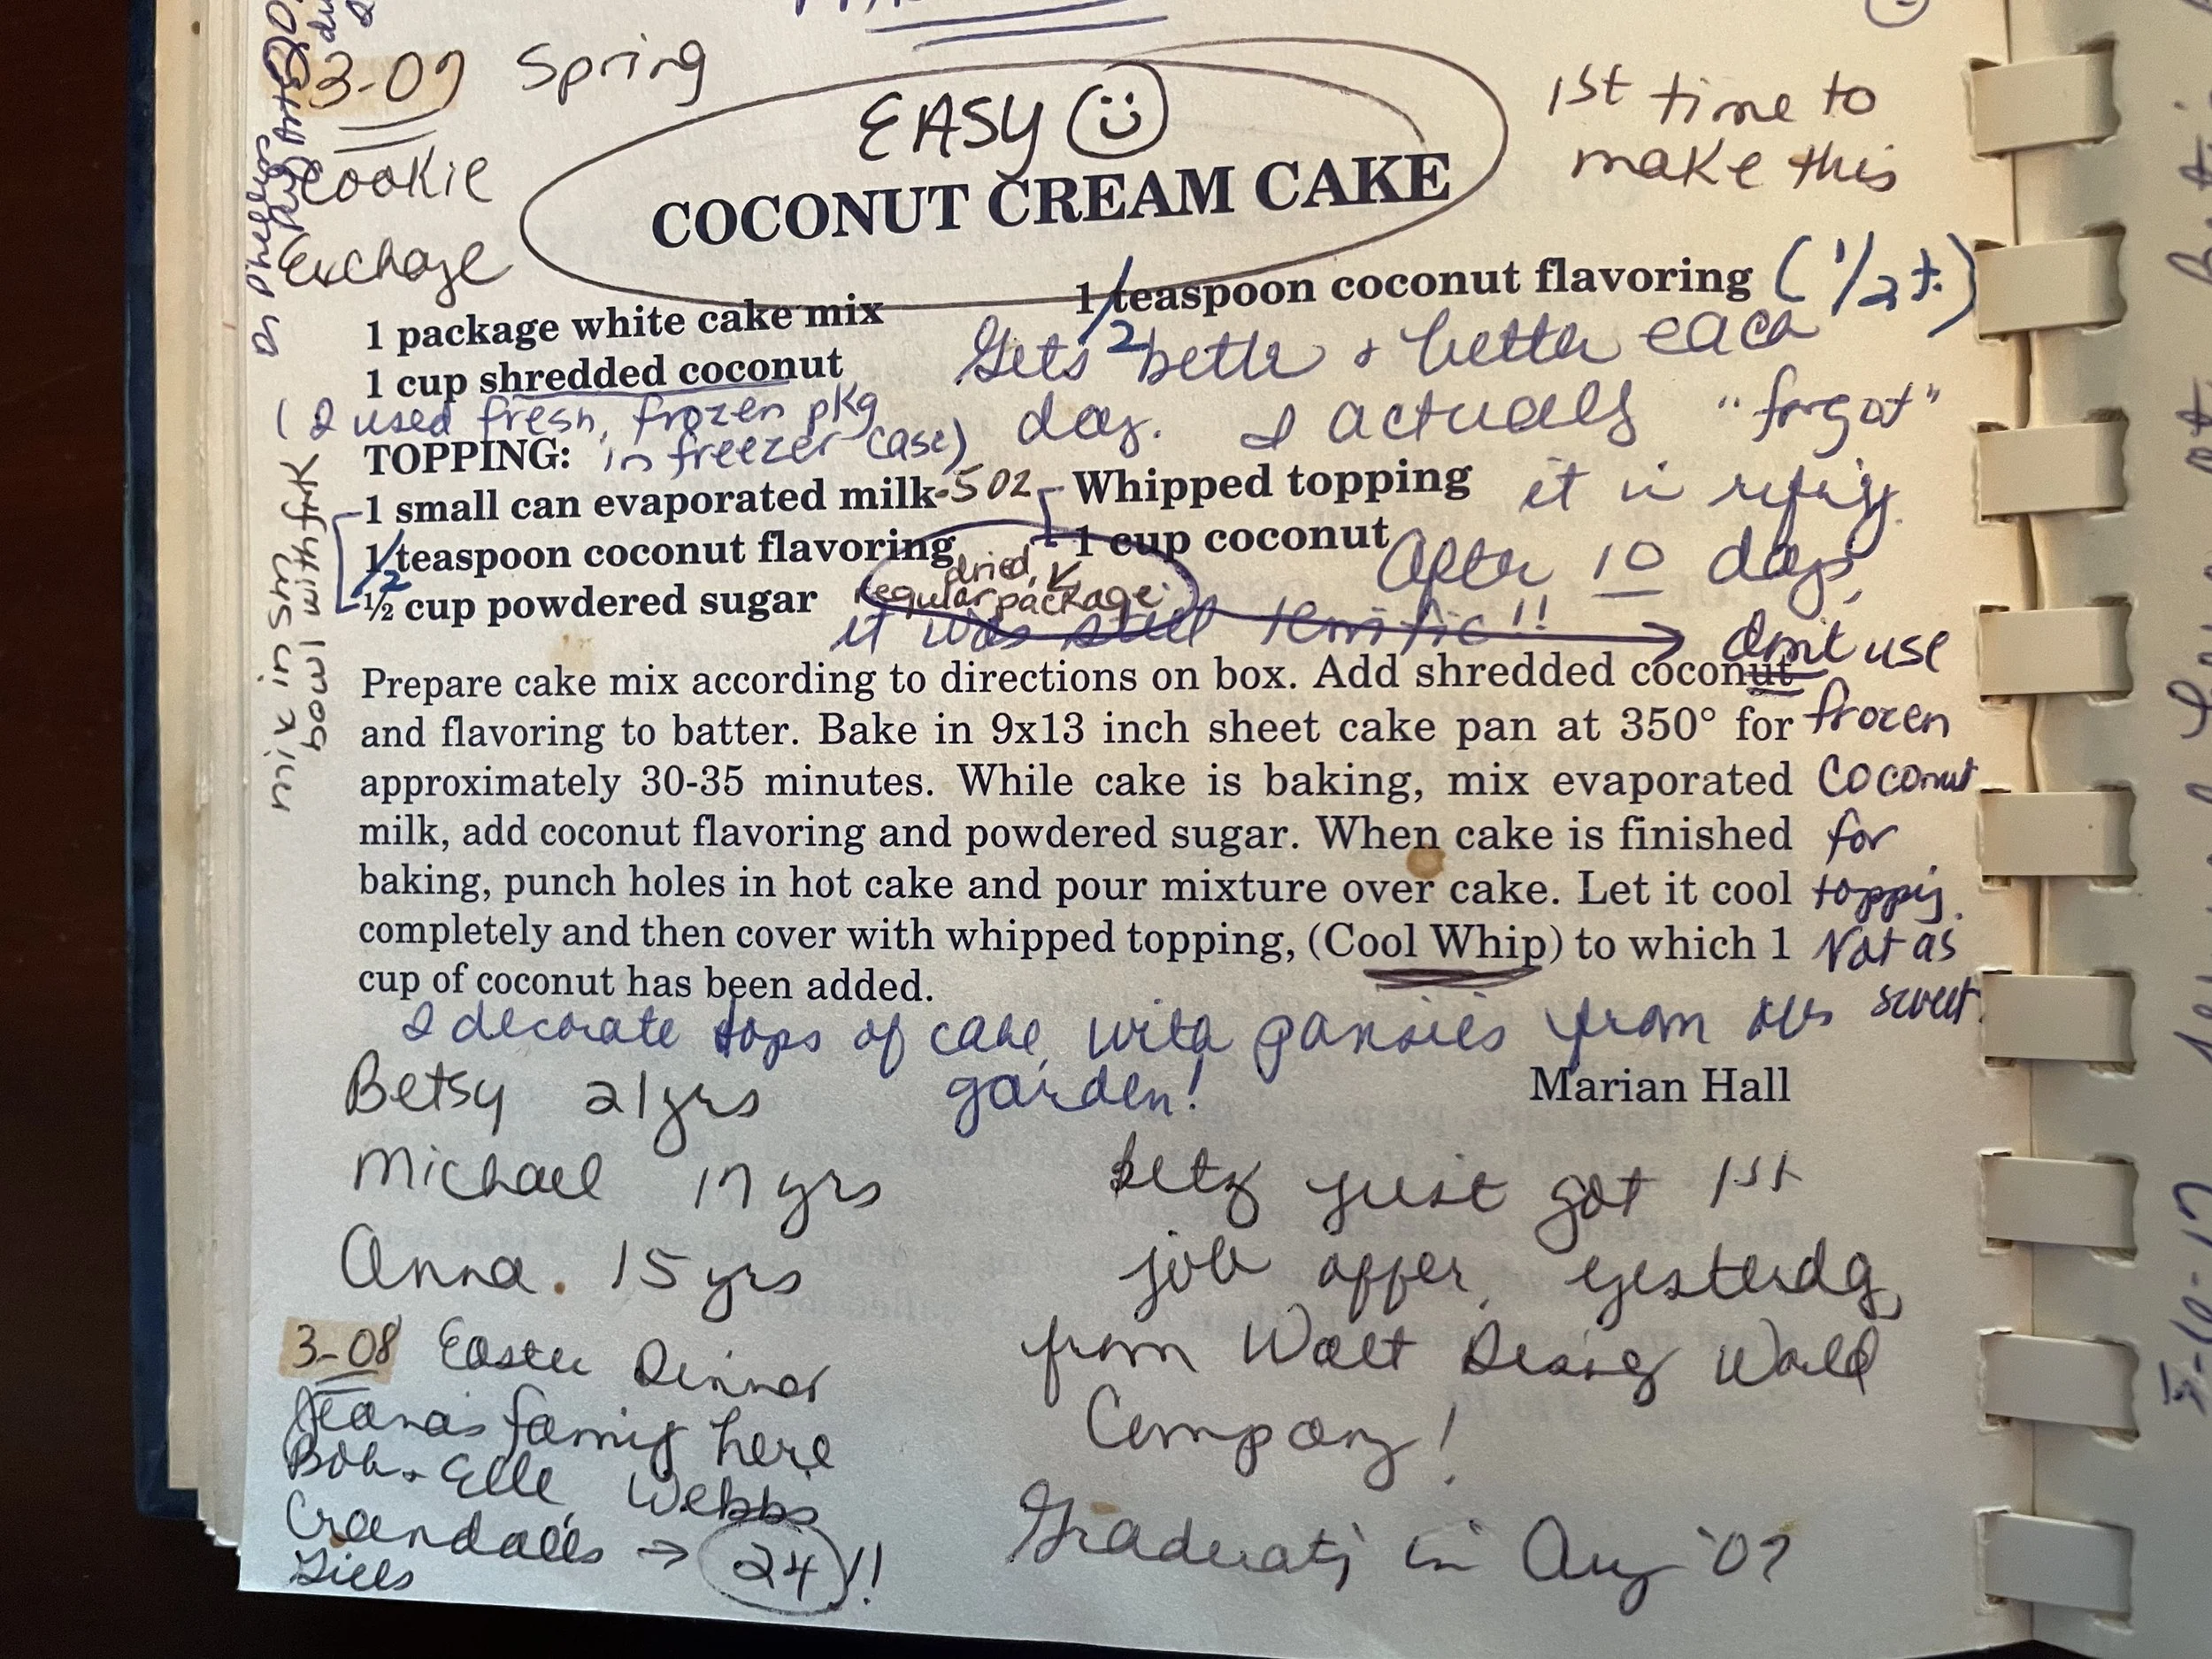 3-07 Spring
Cookie
Exchage
EASY
COCONUT CREAM CAKE
1st time to
make this
1 package white cake mix
1 cup shredded coconut
(I used fresh, frozen pkg
in freezer case)
1 teaspoon coconut flavoring (1/2 t.)
1/2
Gets better & better each
day. I actually "forgot"
it in refrig.
After 10 days,
it was still terrific!!
TOPPING:
1 small can evaporated milk-5oz
1 teaspoon coconut flavoring
1/2
½ cup powdered sugar
Whipped topping
1 cup coconut
dried,
regular package
mix in sm
bowl with fork
don't use
frozen
coconut
for
toppig.
Not as
sweet.
Prepare cake mix according to directions on box. Add shredded coconut
and flavoring to batter. Bake in 9x13 inch sheet cake pan at 350° for
approximately 30-35 minutes. While cake is baking, mix evaporated
milk, add coconut flavoring and powdered sugar. When cake is finished
baking, punch holes in hot cake and pour mixture over cake. Let it cool
completely and then cover with whipped topping, (Cool Whip) to which 1
cup of coconut has been added.
I decorate tops of cake with pansies from
garden!
Marian Hall
Betsy 21yrs
Michael 17 yrs
Anna 15 yrs
just got 1st
job offer yesterday
from Walt Disney World
Company!
Graduatig in Aug '07
3-08 Easter Dinner
family here
Bob & Elle, Webbs
Crandalls → 24!!